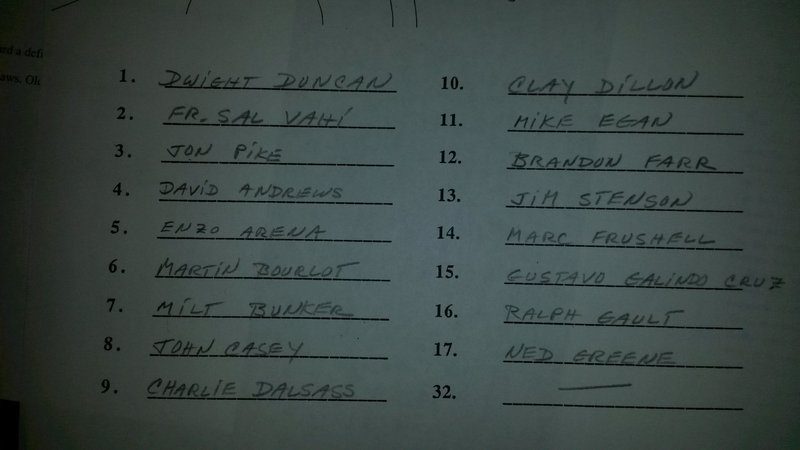 ard a defi
aws. Ok
1. DWIGHT DUNCAN
2. FR. SAL VAHI
3. JON PIKE
4. DAVID ANDREWS
5. ENZO ARENA
6. MARTIN BOURLOT
7. MILT BUNKER
8. JOHN CASEY
9. CHARLIE DALSASS
10. CLAY DILLON
11. MIKE EGAN
12. BRANDON FARR
13. JIM STENSON
14. MARC FRUSHELL
15. GUSTAVO GALINDO CRUZ
16. RALPH GAULT
17. NED GREENE
32.